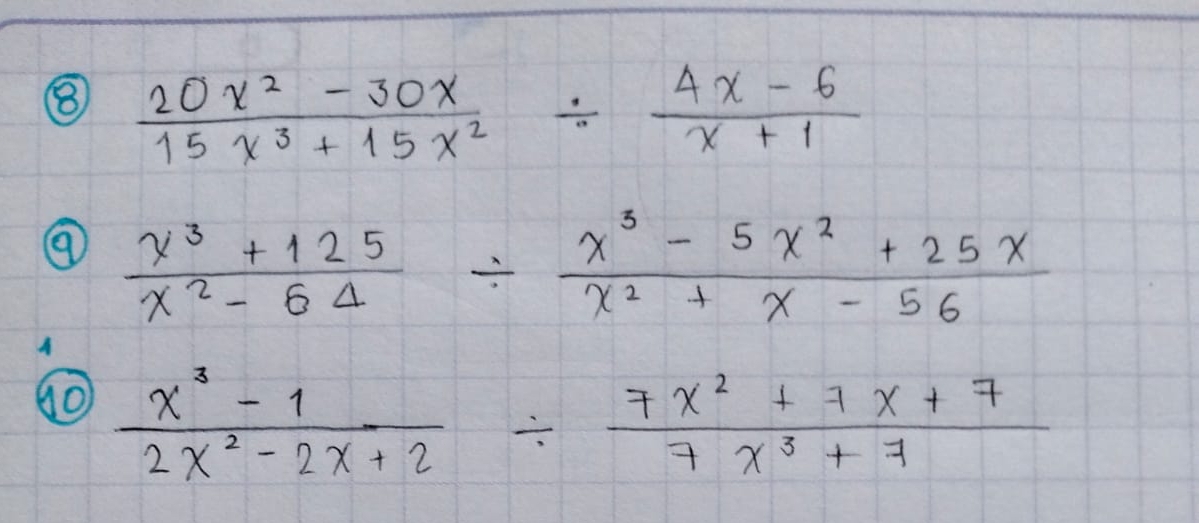 ⑧ (20x² - 30x)/(15x³ + 15x²) ÷ (4x - 6)/(x + 1)
⑨ (x³ + 125)/(x² - 64) ÷ (x³ - 5x² + 25x)/(x² + x - 56)
1
⑩ (x³ - 1)/(2x² - 2x + 2) ÷ (7x² + 7x + 7)/(7x³ + 7)